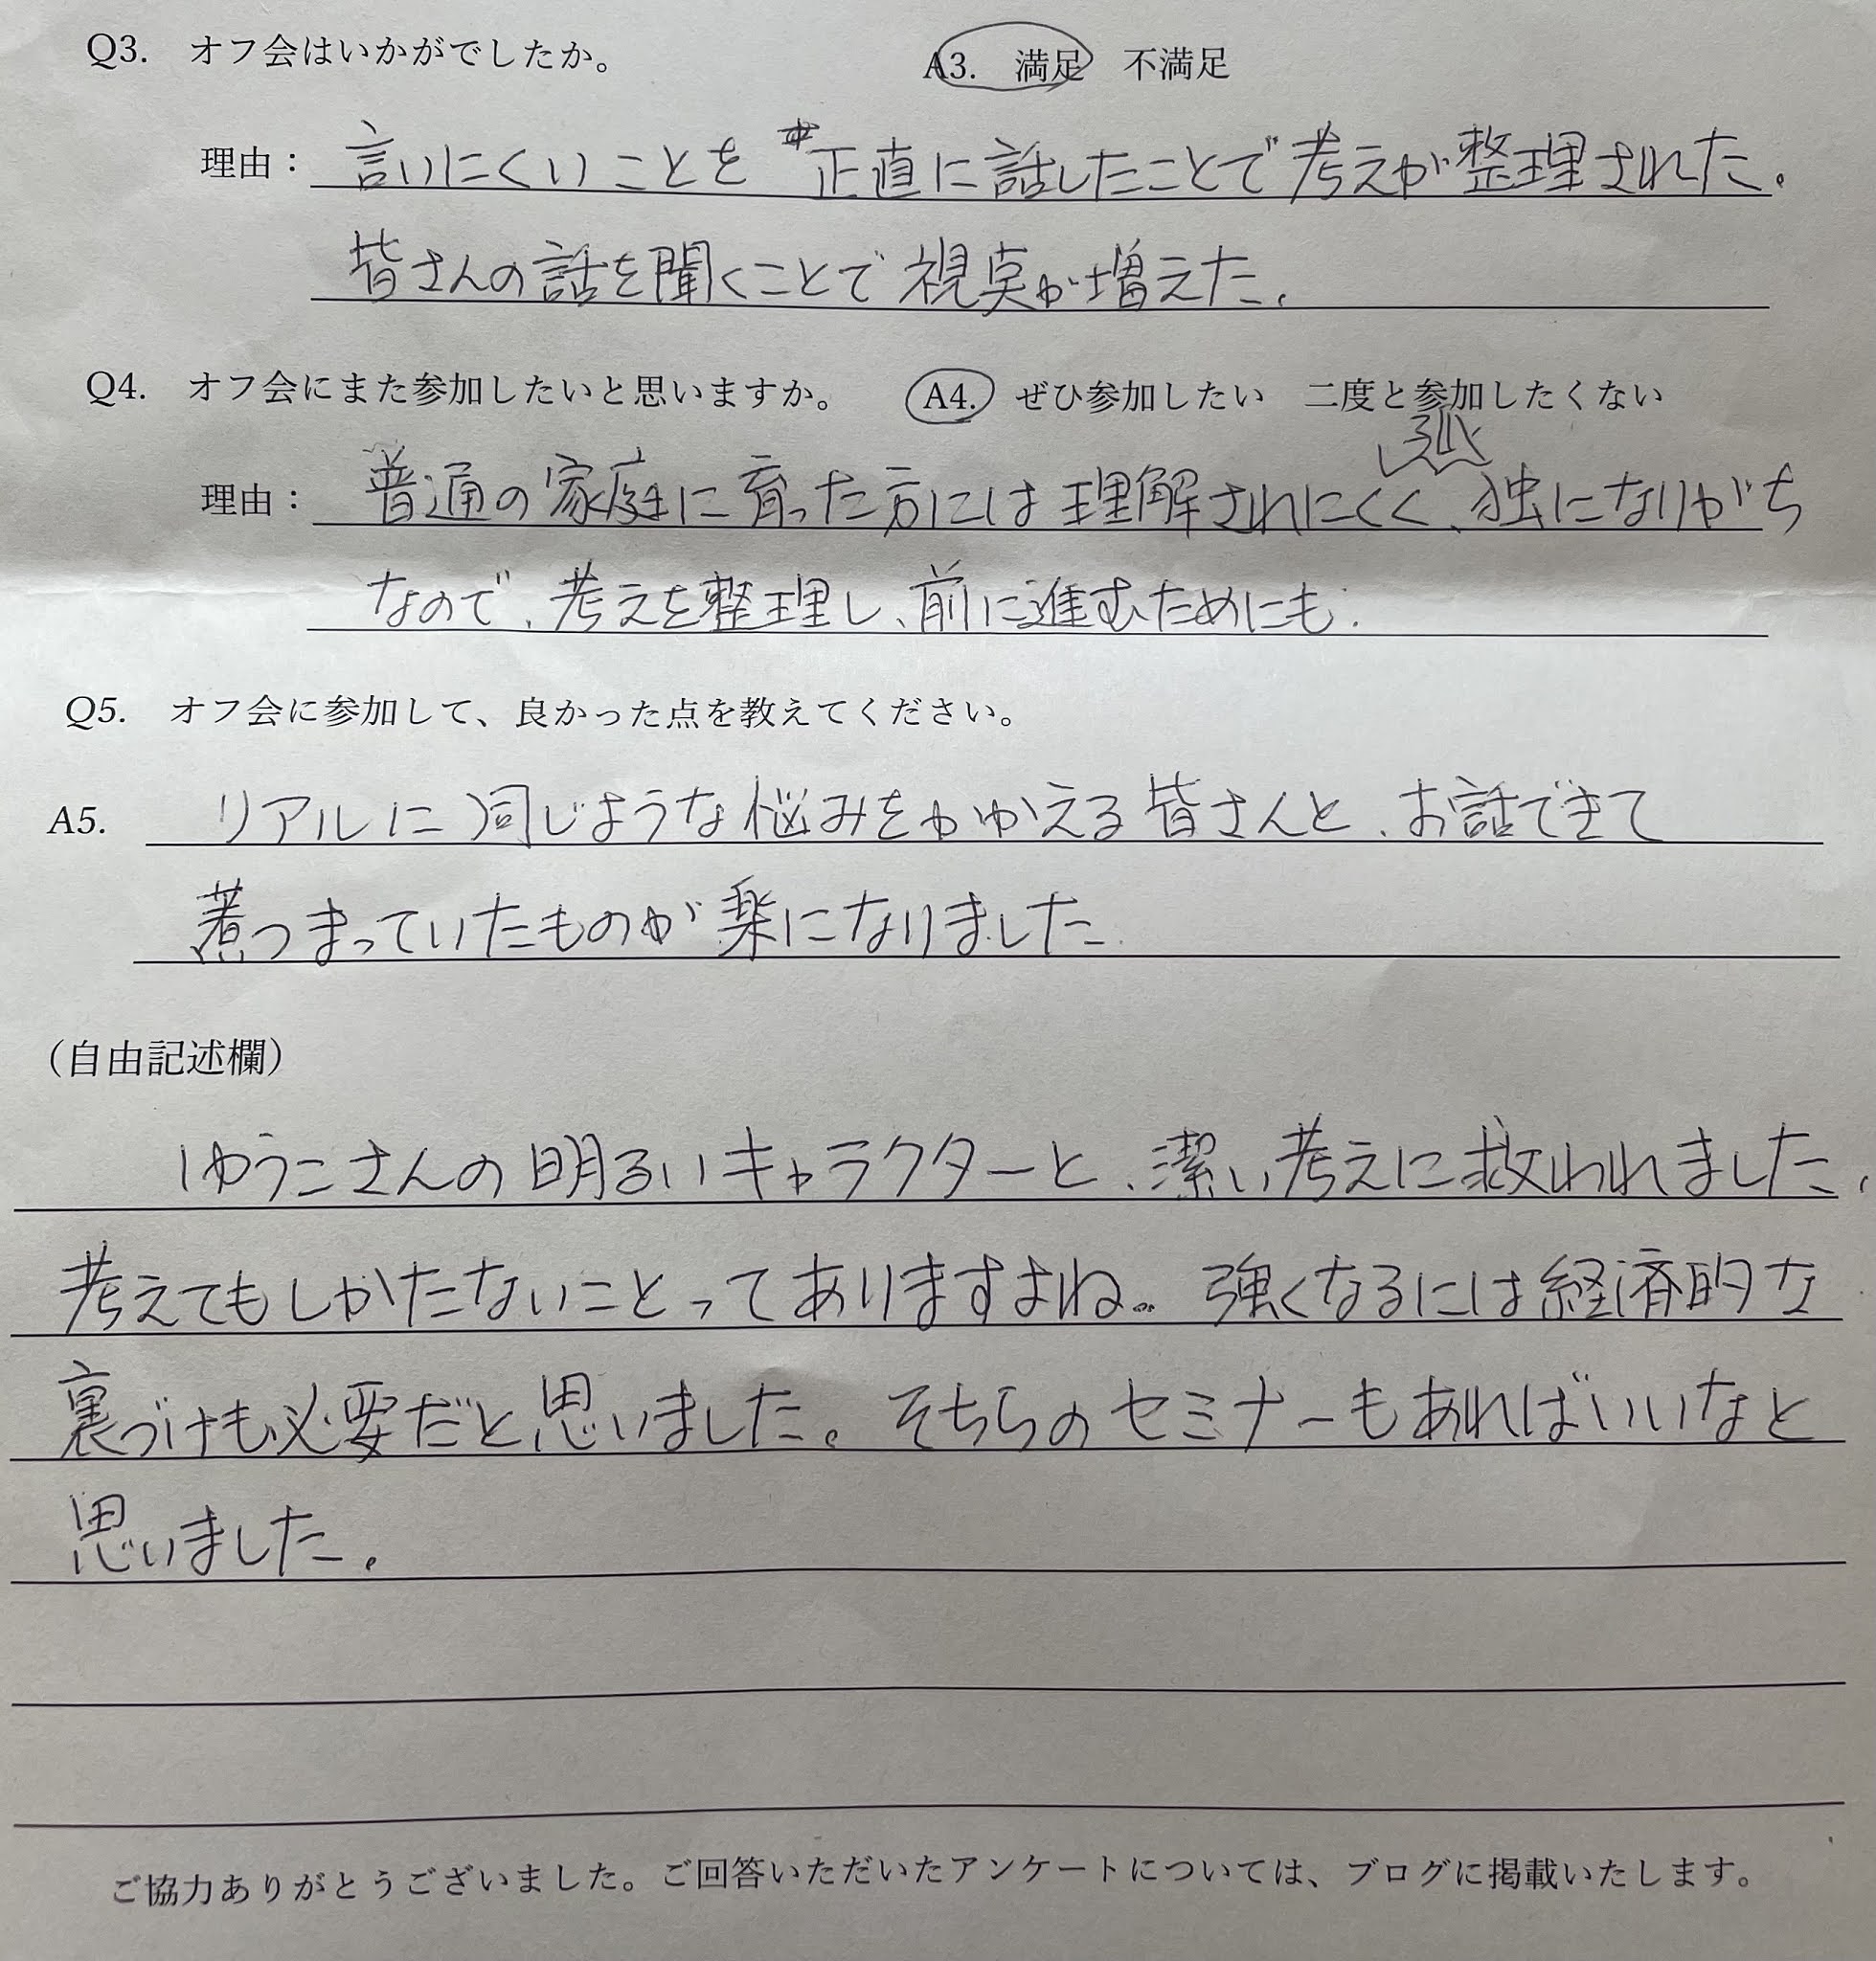 Q3. オフ会はいかがでしたか。 A3. 満足 不満足
理由： 言いにくいことを 正直に話したことで考えが整理された。
皆さんの話を聞くことで視点が増えた。
Q4. オフ会にまた参加したいと思いますか。 A4. ぜひ参加したい 二度と参加したくない
理由： 普通の家庭に育った方には理解されにくく、孤独になりがち
なので、考えを整理し、前に進むためにも．
Q5. オフ会に参加して、良かった点を教えてください。
A5. リアルに同じような悩みをかかえる皆さんと、お話できて
煮つまっていたものが楽になりました
（自由記述欄）
ゆうこさんの明るいキャラクターと、潔い考えに救われました。
考えてもしかたないことってありますよね。強くなるには経済的な
裏づけも必要だと思いました。そちらのセミナーもあればいいなと
思いました。
ご協力ありがとうございました。ご回答いただいたアンケートについては、ブログに掲載いたします。